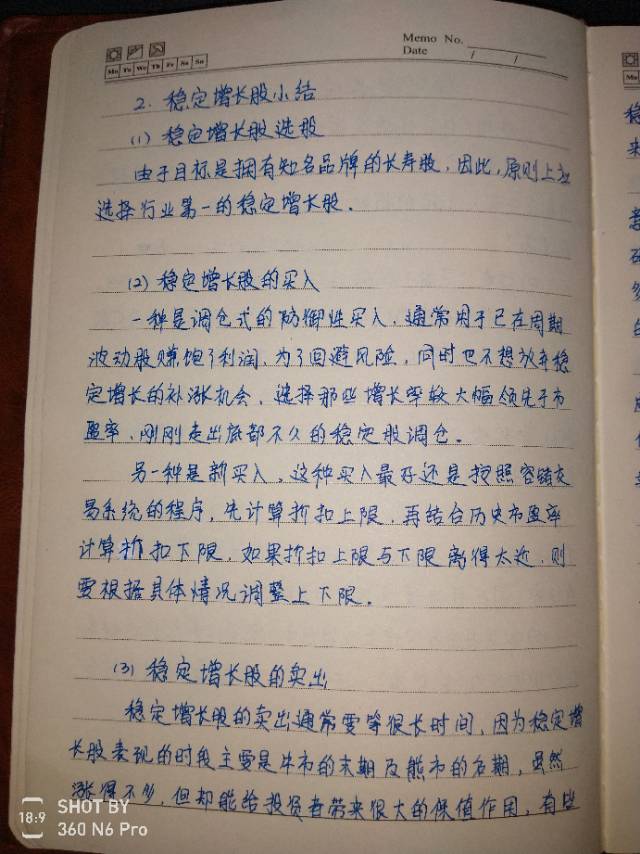 Memo No.
Date / /
Mo Tu We Th Fr Sa Su
2. 稳定增长股小结
(1) 稳定增长股选股
由于目标是拥有知名品牌的长寿股,因此,原则上应
选择行业第一的稳定增长股.
(2) 稳定增长股的买入
一种是调仓式的防御性买入,通常用于已在周期
波动股赚饱了利润,为了回避风险,同时也不想放弃稳
定增长的补涨机会,选择那些增长率较大幅领先于市
盈率、刚刚走出底部不久的稳定股调仓。
另一种是新买入,这种买入最好还是按照容错交
易系统的程序,先计算折扣上限,再结合历史市盈率
计算折扣下限,如果折扣上限与下限离得太近,则
要根据具体情况调整上下限。
(3) 稳定增长股的卖出
稳定增长股的卖出通常要等很长时间,因为稳定增
长股表现的时段主要是牛市的末期及熊市的后期,虽然
涨得不多,但却能给投资者带来很大的保值作用,有些
18:9
SHOT BY
360 N6 Pro
Mo